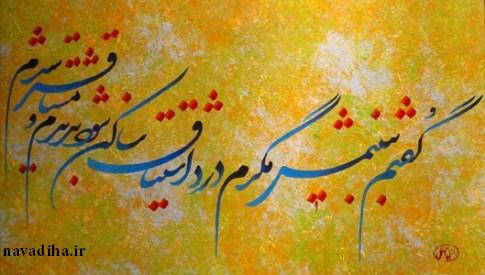 گفتم ببینمش مگرم درد اشتیاق ساکن شود بدیدم و مشتاق تر شدم
navadiha.ir